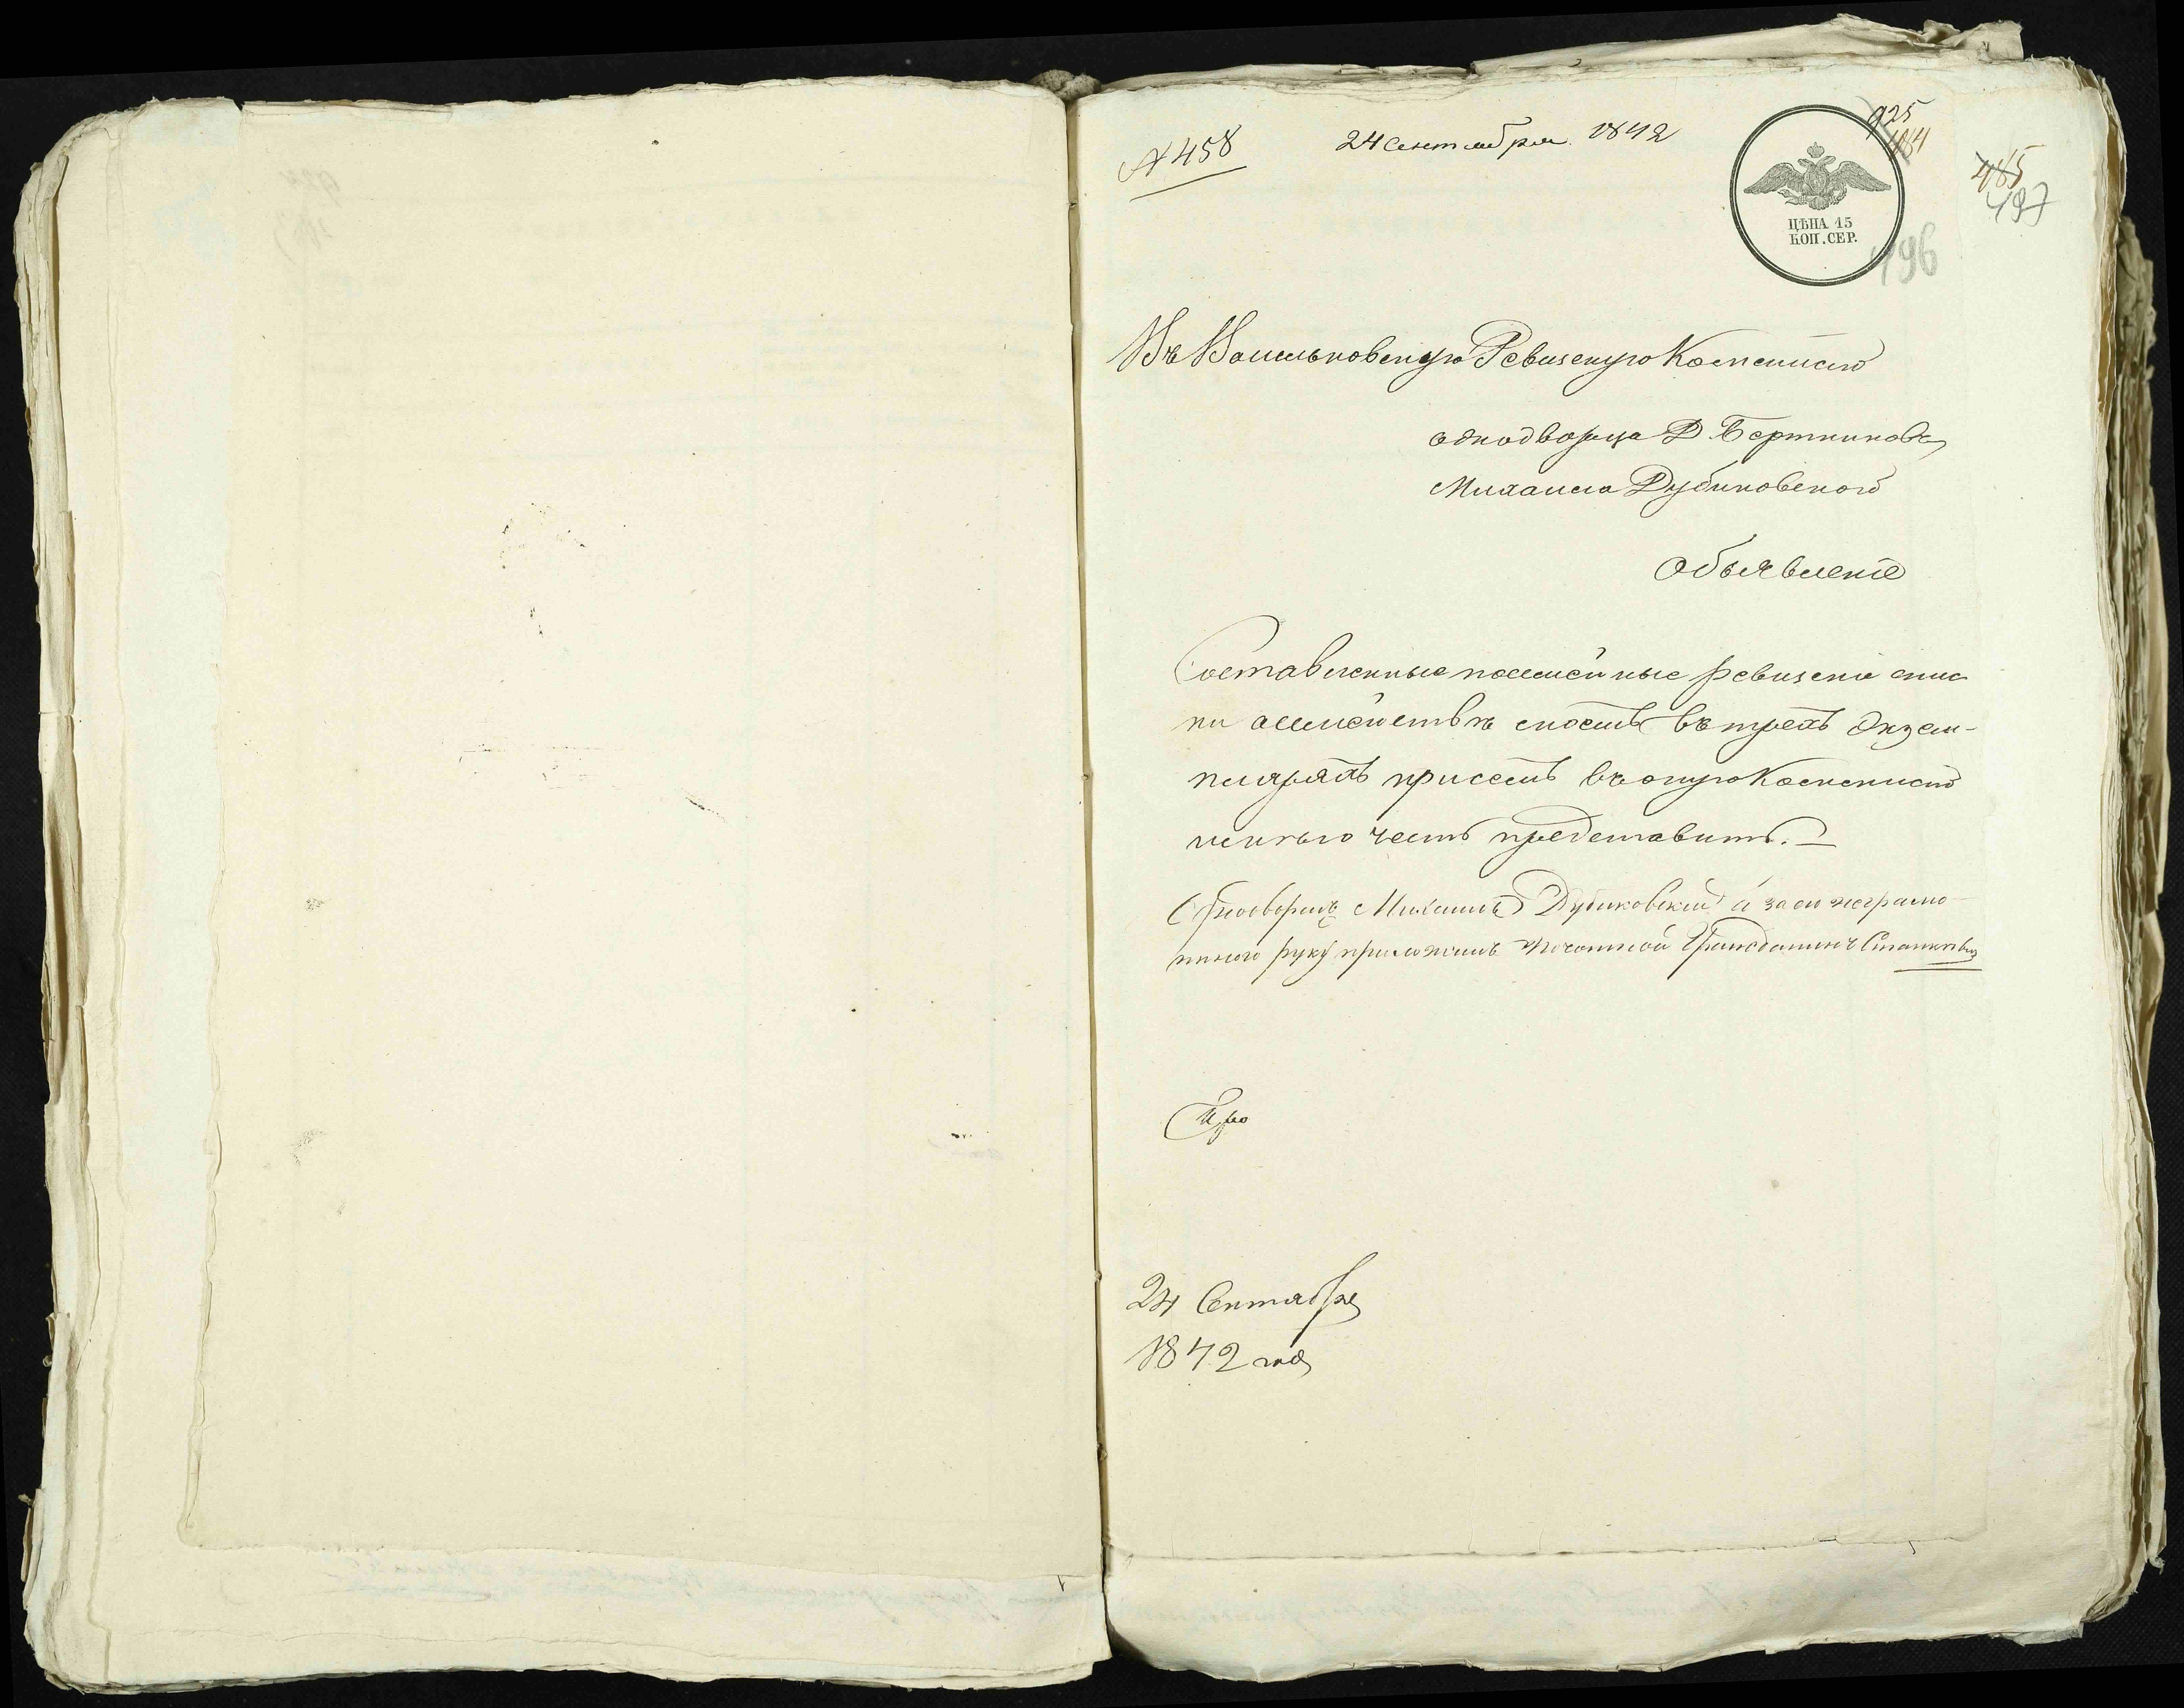 № 458
24 Сентября 1842
925
484
485
497
ЦѢНА 15
КОП. СЕР.
496
Въ Васильковскую Ревизскую Коммисію
однодворца Д. Бертникова
Михаила Дубиковского
Объявленіе
Составленные посемейные ревизскіе спис
ки о семействѣ своемъ въ трехъ Экзем-
плярахъ присемъ въ оную Коммисію
имѣю честь представить.
Однодворецъ Михаилъ Дубиковскій и за его неграмо
тного руку приложилъ Почотной Гражданинъ
24 Сентября
1842 года